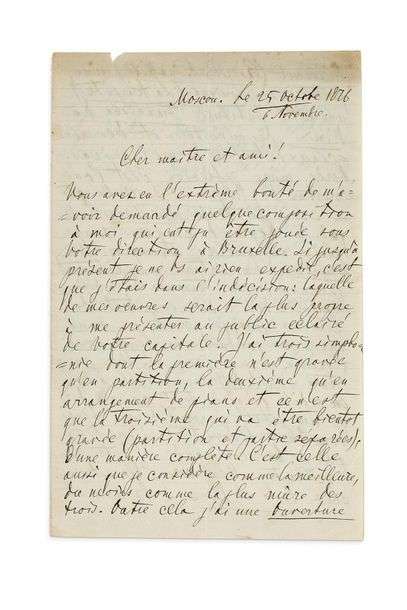 Moscou. Le 25 Octobre 1876
6 Novembre.
Cher maître et ami!
Vous avez eu l'extrême bonté de m'a-
=voir demandé quelque composition
à moi qui eut pu être jouée sous
votre direction à Bruxelle. Si jusqu'à
présent je ne Vs ai rien expedié, c'est
que j'étais dans l'indécision: laquelle
de mes oeuvres serait la plus propre
à me présenter au public éclairé
de votre capitale. J'ai trois sympho=
=nie dont la première n'est gravée
qu'en partition, la deuxième qu'en
arrangement de piano et ce n'est
que la troisième qui va être bientot
gravée (partition et partie separées).
D'une manière complète. C'est celle
aussi que je considère comme la meilleure,
du moins comme la plus mûre des
trois. Outre cela j'ai une Ouverture